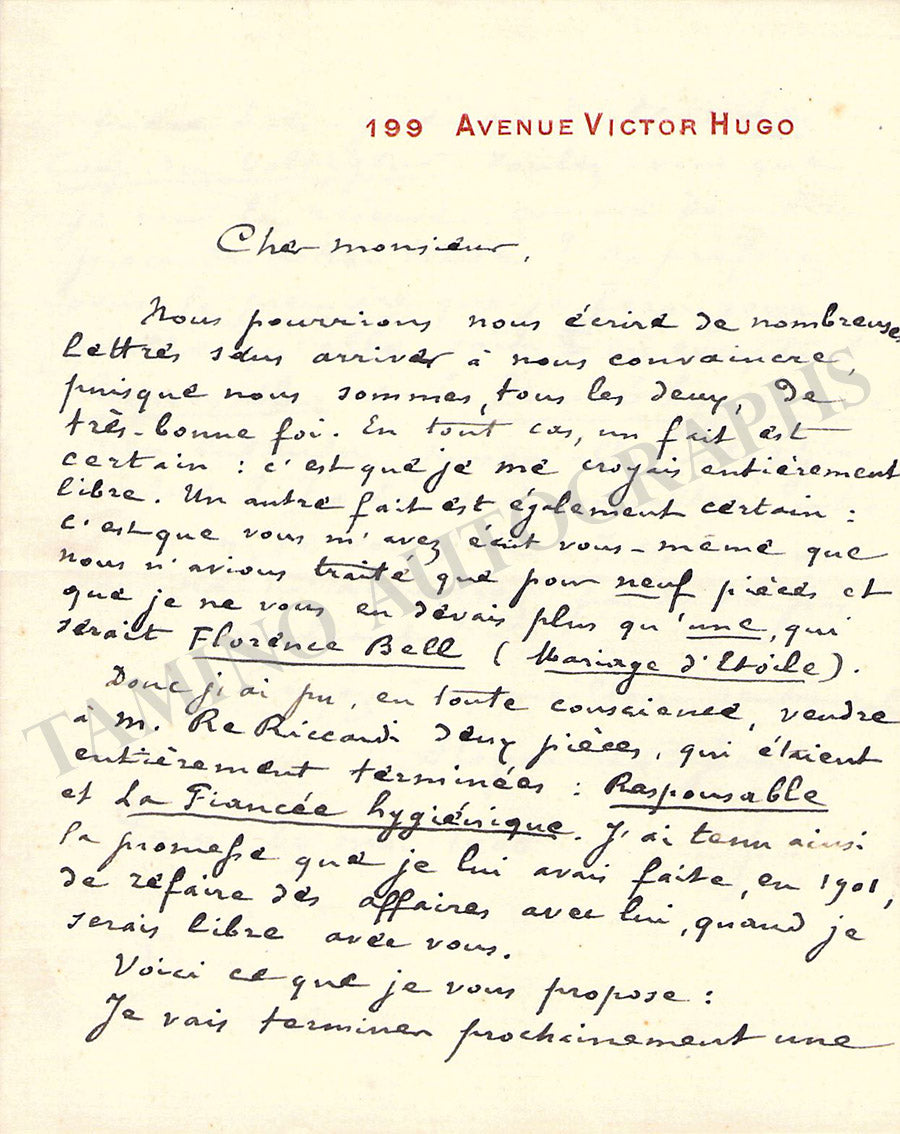 199 AVENUE VICTOR HUGO
Cher monsieur,
Nous pourrions nous écrire de nombreuses
lettres sans arriver à nous convaincre,
puisque nous sommes, tous les deux, de
très-bonne foi. En tout cas, un fait est
certain : c'est que je me croyais entièrement
libre. Un autre fait est également certain :
c'est que vous m'avez écrit vous-même que
nous n'avions traité que pour neuf pièces et
que je ne vous en devais plus qu'une, qui
serait Florence Bell (Mariage d'Etoile).
Donc j'ai pu, en toute conscience, vendre
à M. Re Riccardi deux pièces, qui étaient
entièrement terminées : Responsable
et La Fiancée hygiénique. J'ai tenu ainsi
la promesse que je lui avais faite, en 1901,
de refaire des affaires avec lui, quand je
serais libre avec vous.
Voici ce que je vous propose :
Je vais terminer prochainement une
TAMINO AUTOGRAPHS